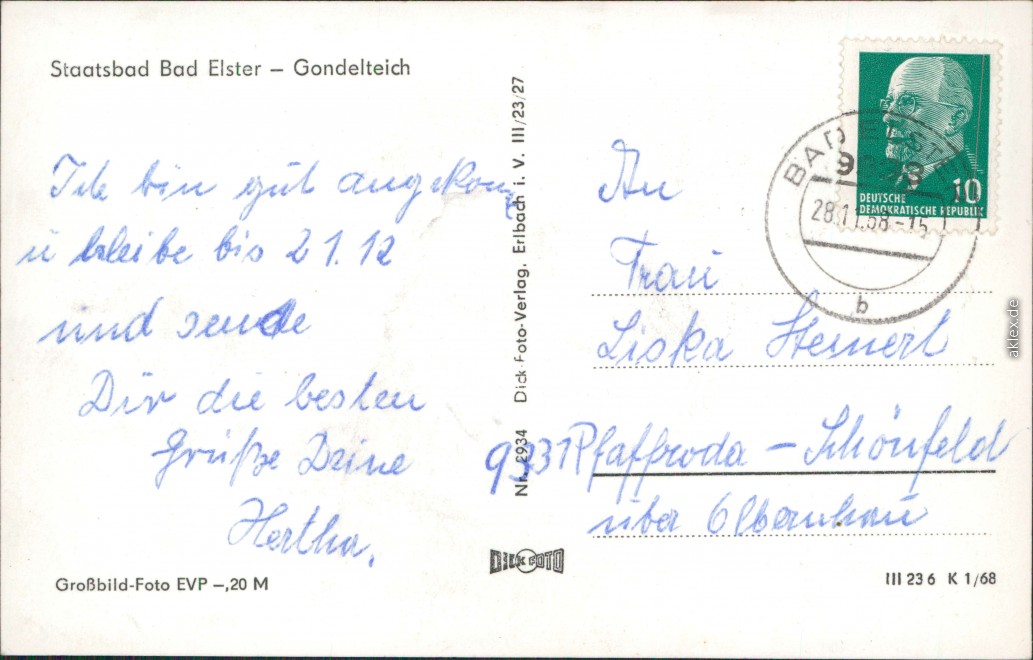 Staatsbad Bad Elster – Gondelteich
Ich bin gut angekom
u bleibe bis 21.12
und sende
Dir die besten
Grüße Deine
Hertha.
Großbild-Foto EVP –,20 M
Nr. 2934 Dick-Foto-Verlag, Erlbach i. V. III/23/27
DICK FOTO
DEUTSCHE
DEMOKRATISCHE REPUBLIK
10
BAD ELSTER
9933
28.11.68-15
b
An
Frau
Liska Steinert
9331 Pfaffroda – Schönfeld
über Olbernhau
III 23 6 K 1/68
aklex.de